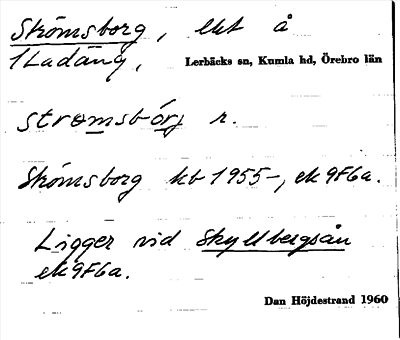 Skömsborg, lht å
1Ladäng, Lerbäcks sn, Kumla hd, Örebro län
strømsbórj r.
Skömsborg kb 1955-, ek 9F6a.
Ligger vid Skyllbergsån
ek9F6a.
Dan Höjdestrand 1960